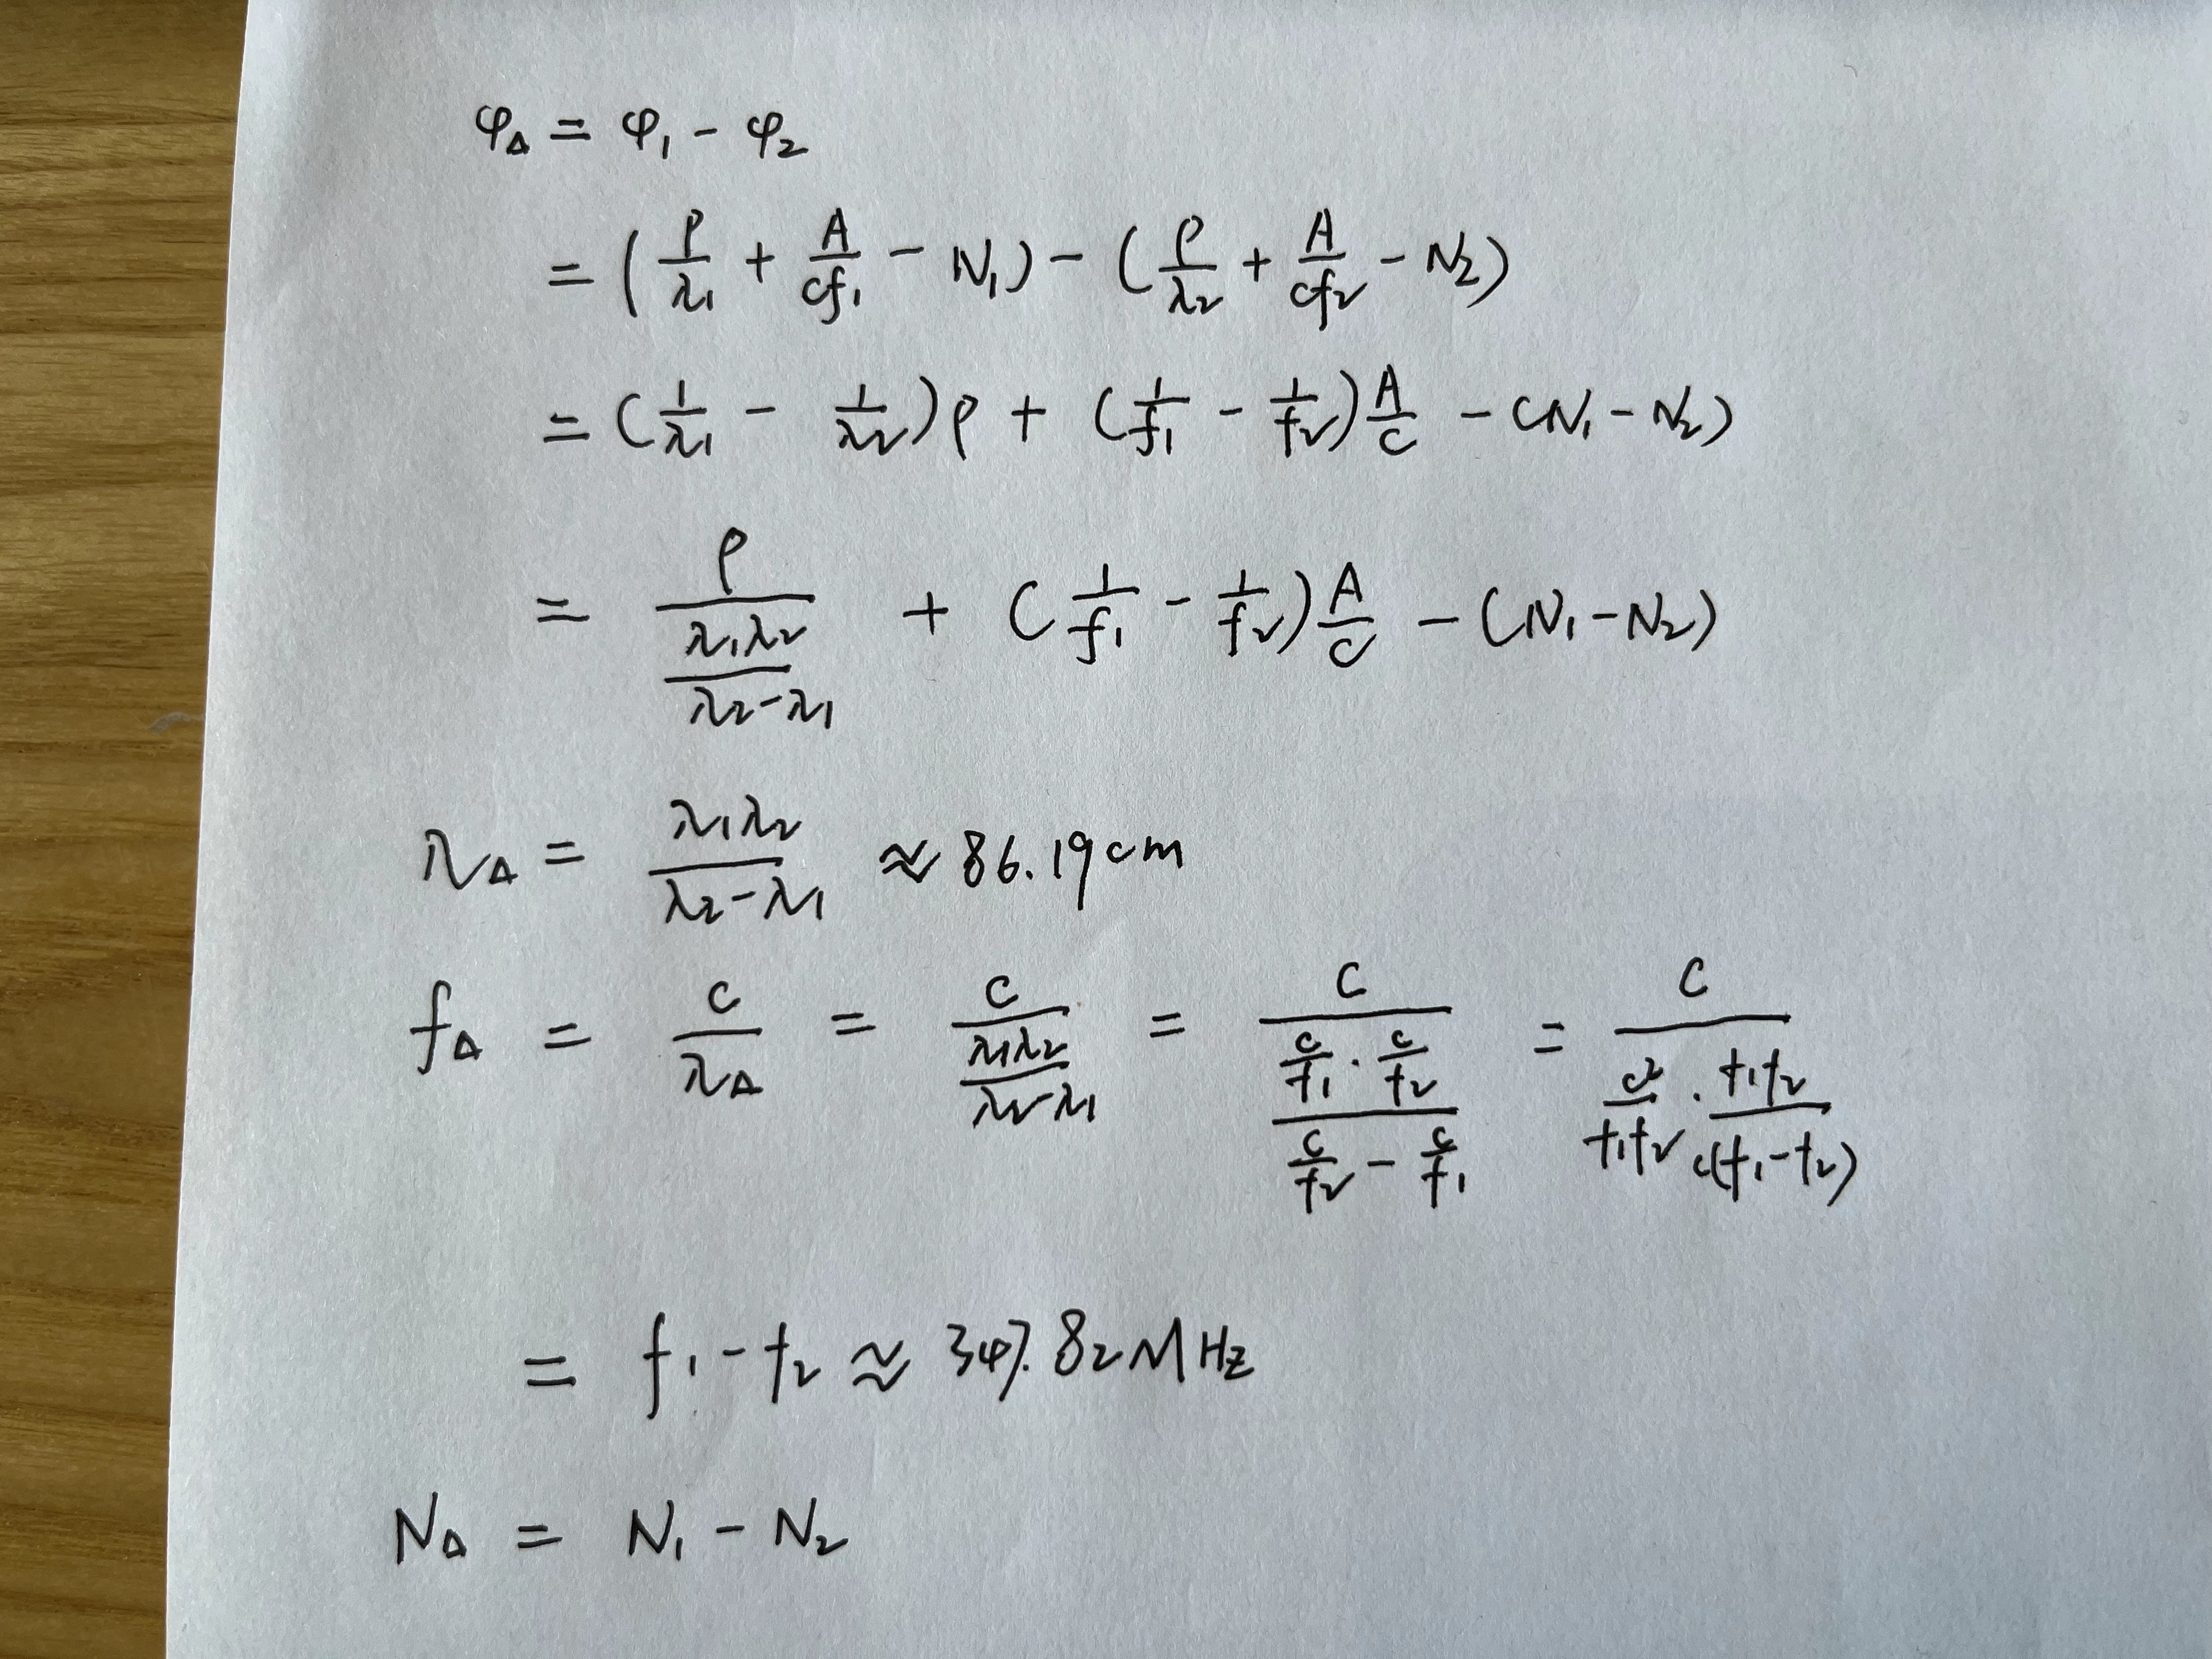 φ_Δ = φ₁ - φ₂
= (ρ/λ₁ + A/(cf₁) - N₁) - (ρ/λ₂ + A/(cf₂) - N₂)
= (1/λ₁ - 1/λ₂)ρ + (1/f₁ - 1/f₂)A/c - (N₁ - N₂)
= ρ/(λ₁λ₂/(λ₂-λ₁)) + (1/f₁ - 1/f₂)A/c - (N₁-N₂)
λ_Δ = λ₁λ₂/(λ₂-λ₁) ≈ 86.19cm
f_Δ = c/λ_Δ = c/(λ₁λ₂/(λ₂-λ₁)) = c/((c/f₁ · c/f₂)/(c/f₂ - c/f₁)) = c/(c²/(f₁f₂) · f₁f₂/(c(f₁-f₂)))
= f₁-f₂ ≈ 347.82MHz
N_Δ = N₁ - N₂